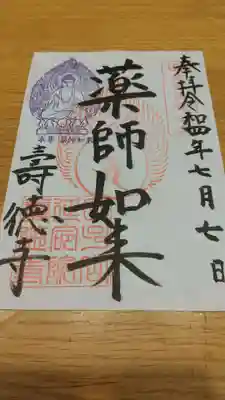 奉拝 令和四年七月七日
薬師如来
壽徳寺